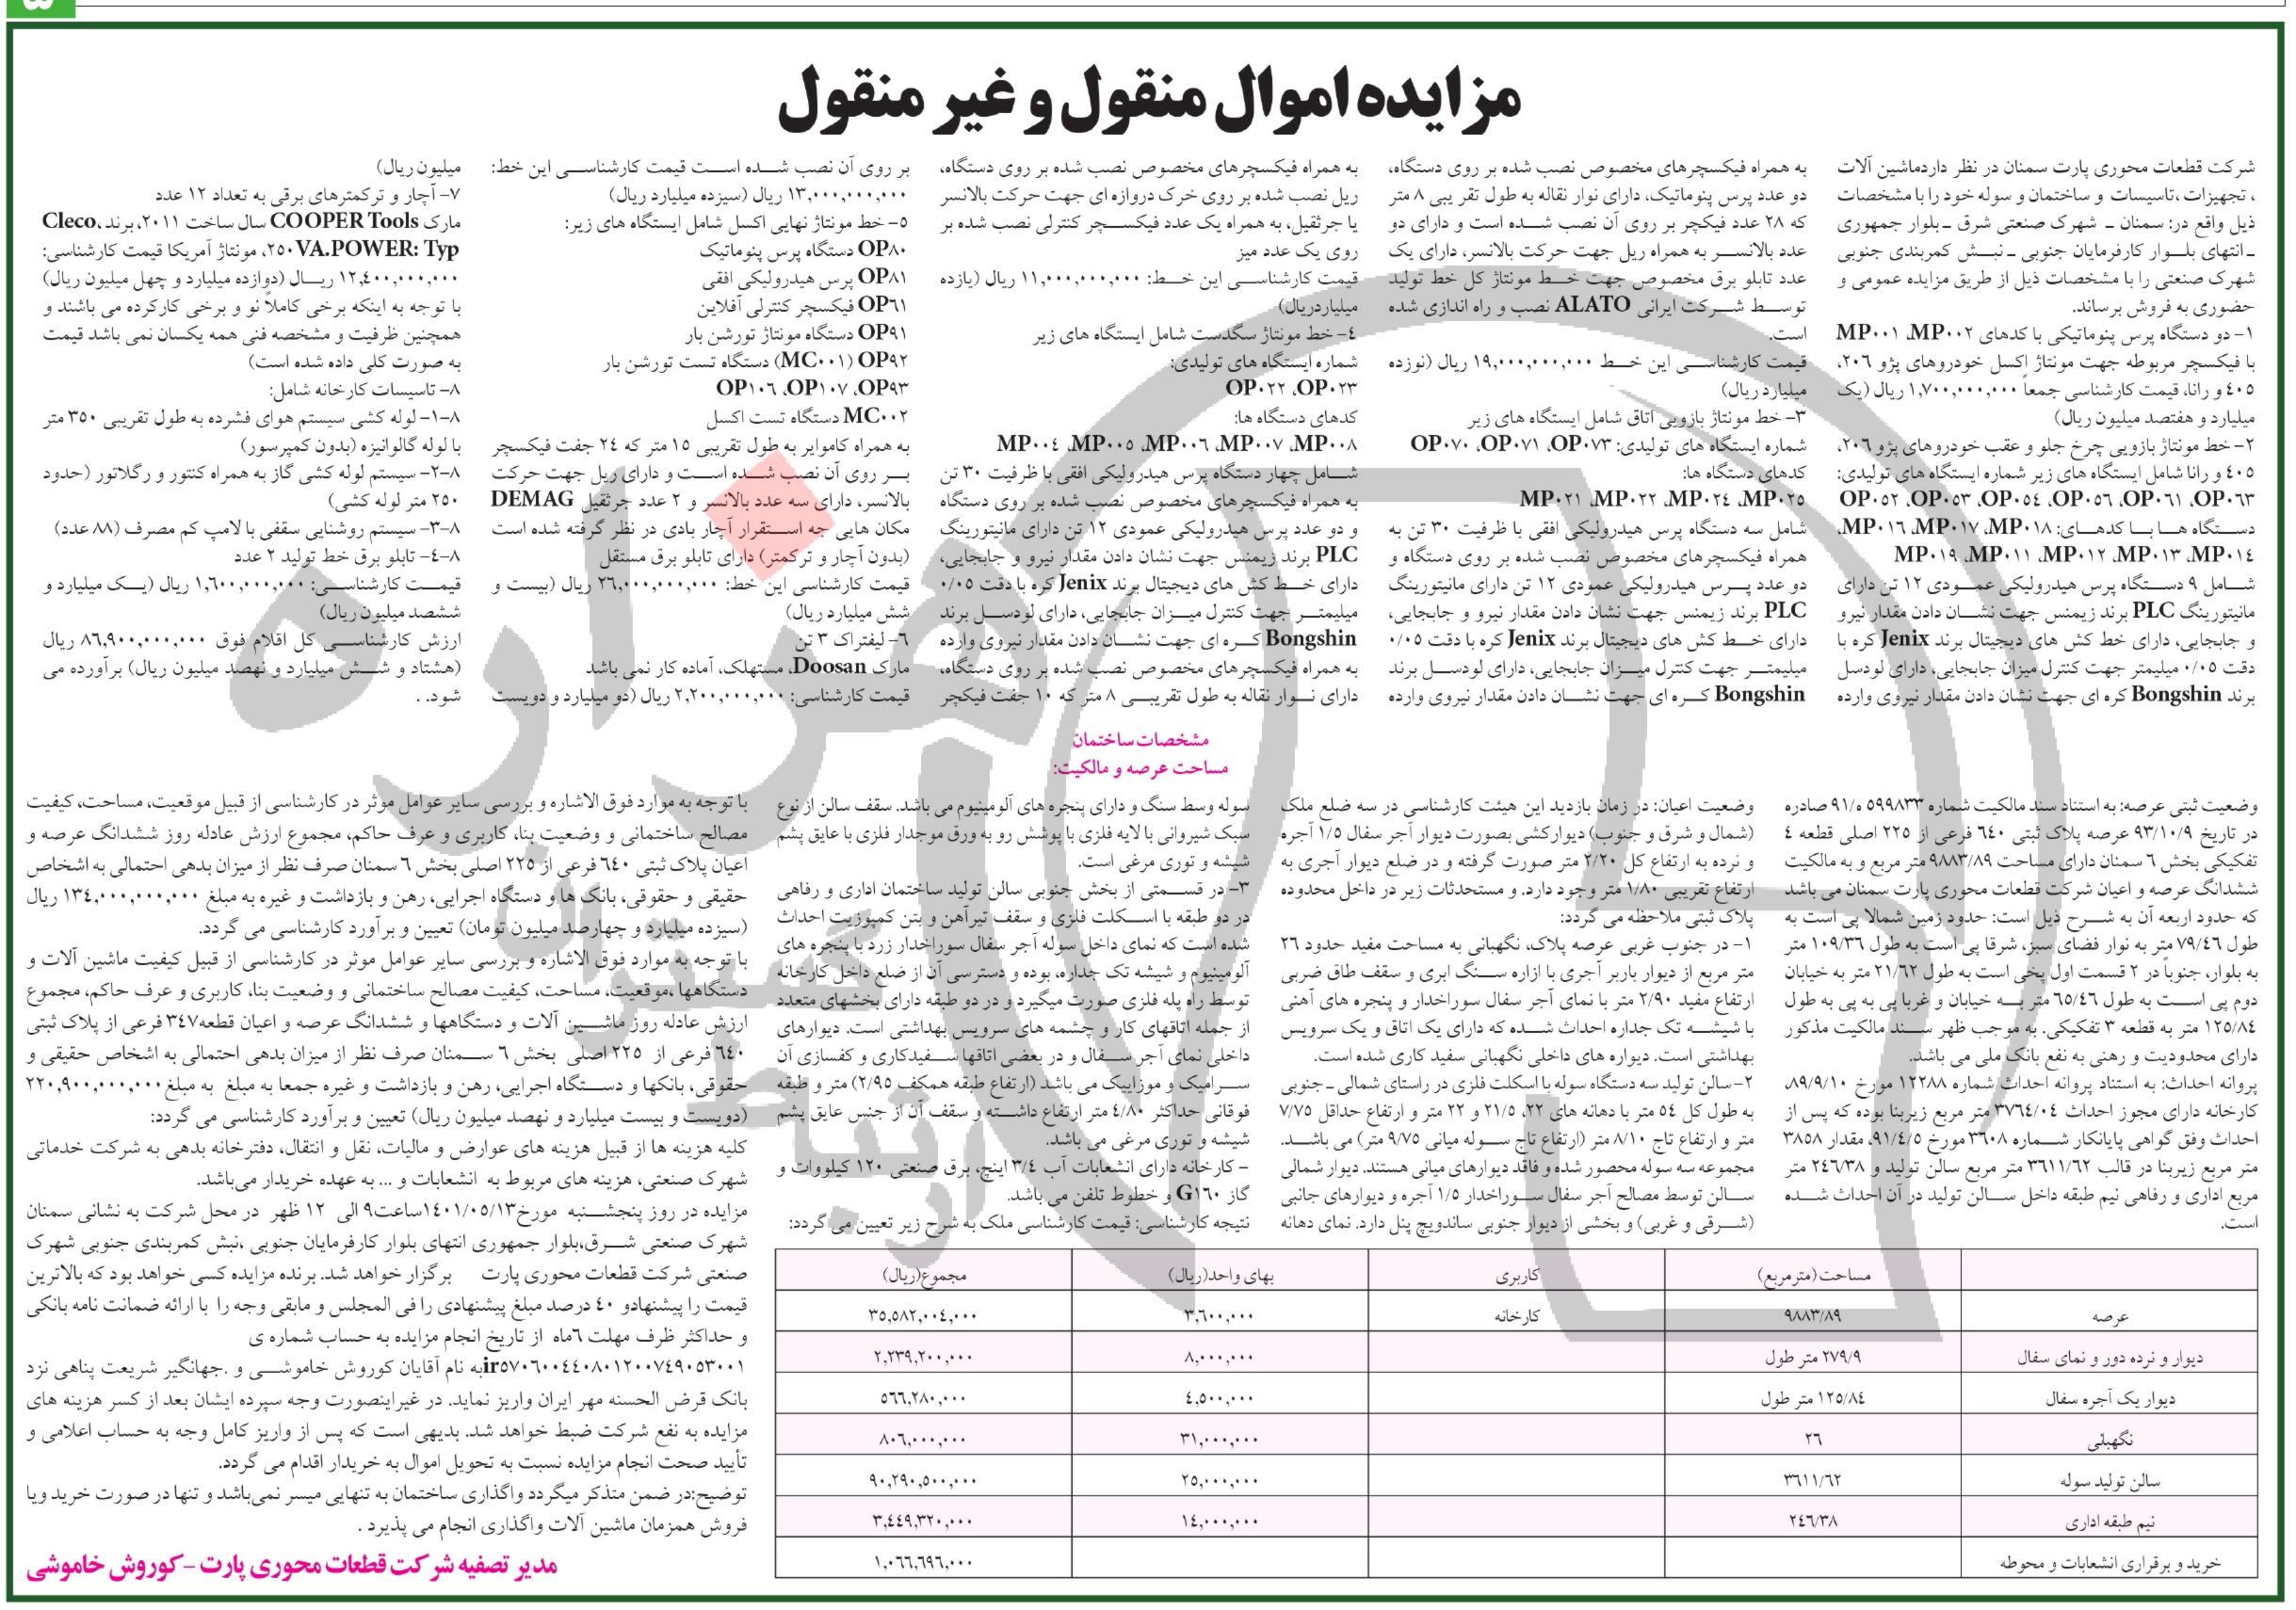 ۵
مزایده اموال منقول و غیر منقول
شرکت قطعات محوری پارت سمنان در نظر داردماشین آلات
، تجهیزات ،تاسیسات و ساختمان و سوله خود را با مشخصات
ذیل واقع در: سمنان ـ شهرک صنعتی شرق ـ بلوار جمهوری
ـ انتهای بلوار کارفرمایان جنوبی ـ نبش کمربندی جنوبی
شهرک صنعتی را با مشخصات ذیل از طریق مزایده عمومی و
حضوری به فروش برساند.
۱- دو دستگاه پرس پنوماتیکی با کدهای MP۰۰۱ ،MP۰۰۲
با فیکسچر مربوطه جهت مونتاژ اکسل خودروهای پژو ۲۰۶،
۴۰۵ و رانا، قیمت کارشناسی جمعاً ۱,۷۰۰,۰۰۰,۰۰۰ ریال (یک
میلیارد و هفتصد میلیون ریال)
۲- خط مونتاژ بازویی چرخ جلو و عقب خودروهای پژو ۲۰۶،
۴۰۵ و رانا شامل ایستگاه های زیر شماره ایستگاه های تولیدی:
OP۰۵۲ ،OP۰۵۳ ،OP۰۵۴ ،OP۰۵۶ ،OP۰۶۱ ،OP۰۶۳
دستگاه ها با کدهای: MP۰۱۶ ،MP۰۱۷ ،MP۰۱۸،
MP۰۱۹ ،MP۰۱۱ ،MP۰۱۲ ،MP۰۱۳ ،MP۰۱۴
شامل ۹ دستگاه پرس هیدرولیکی عمودی ۱۲ تن دارای
مانیتورینگ PLC برند زیمنس جهت نشان دادن مقدار نیرو
و جابجایی، دارای خط کش های دیجیتال برند Jenix کره با
دقت ۰/۰۵ میلیمتر جهت کنترل میزان جابجایی، دارای لودسل
برند Bongshin کره ای جهت نشان دادن مقدار نیروی وارده
به همراه فیکسچرهای مخصوص نصب شده بر روی دستگاه،
دو عدد پرس پنوماتیک، دارای نوار نقاله به طول تقر یبی ۸ متر
که ۲۸ عدد فیکچر بر روی آن نصب شده است و دارای دو
عدد بالانسر به همراه ریل جهت حرکت بالانسر، دارای یک
عدد تابلو برق مخصوص جهت خط مونتاژ کل خط تولید
توسط شرکت ایرانی ALATO نصب و راه اندازی شده
است.
قیمت کارشناسی این خط ۱۹,۰۰۰,۰۰۰,۰۰۰ ریال (نوزده
میلیارد ریال)
۳- خط مونتاژ بازویی اتاق شامل ایستگاه های زیر
شماره ایستگاه های تولیدی: OP۰۷۰ ،OP۰۷۱ ،OP۰۷۳
کدهای دستگاه ها:
MP۰۲۱ ،MP۰۲۲ ،MP۰۲۴ ،MP۰۲۵
شامل سه دستگاه پرس هیدرولیکی افقی با ظرفیت ۳۰ تن به
همراه فیکسچرهای مخصوص نصب شده بر روی دستگاه و
دو عدد پرس هیدرولیکی عمودی ۱۲ تن دارای مانیتورینگ
PLC برند زیمنس جهت نشان دادن مقدار نیرو و جابجایی،
دارای خط کش های دیجیتال برند Jenix کره با دقت ۰/۰۵
میلیمتر جهت کنترل میزان جابجایی، دارای لودسل برند
Bongshin کره ای جهت نشان دادن مقدار نیروی وارده
به همراه فیکسچرهای مخصوص نصب شده بر روی دستگاه،
ریل نصب شده بر روی خرک دروازه ای جهت حرکت بالانسر
یا جرثقیل، به همراه یک عدد فیکسچر کنترلی نصب شده بر
روی یک عدد میز
قیمت کارشناسی این خط: ۱۱,۰۰۰,۰۰۰,۰۰۰ ریال (یازده
میلیاردریال)
۴- خط مونتاژ سگدست شامل ایستگاه های زیر
شماره ایستگاه های تولیدی:
OP۰۲۲ ،OP۰۲۳
کدهای دستگاه ها:
MP۰۰۴ ،MP۰۰۵ ،MP۰۰۶ ،MP۰۰۷ ،MP۰۰۸
شامل چهار دستگاه پرس هیدرولیکی افقی با ظرفیت ۳۰ تن
به همراه فیکسچرهای مخصوص نصب شده بر روی دستگاه
و دو عدد پرس هیدرولیکی عمودی ۱۲ تن دارای مانیتورینگ
PLC برند زیمنس جهت نشان دادن مقدار نیرو و جابجایی،
دارای خط کش های دیجیتال برند Jenix کره با دقت ۰/۰۵
میلیمتر جهت کنترل میزان جابجایی، دارای لودسل برند
Bongshin کره ای جهت نشان دادن مقدار نیروی وارده
به همراه فیکسچرهای مخصوص نصب شده بر روی دستگاه،
دارای نوار نقاله به طول تقریبی ۸ متر که ۱۰ جفت فیکچر
بر روی آن نصب شده است قیمت کارشناسی این خط:
۱۳,۰۰۰,۰۰۰,۰۰۰ ریال (سیزده میلیارد ریال)
۵- خط مونتاژ نهایی اکسل شامل ایستگاه های زیر:
OP۸۰ دستگاه پرس پنوماتیک
OP۸۱ پرس هیدرولیکی افقی
OP۶۱ فیکسچر کنترلی آفلاین
OP۹۱ دستگاه مونتاژ تورشن بار
OP۹۲ (MC۰۰۱) دستگاه تست تورشن بار
OP۱۰۶ ،OP۱۰۷ ،OP۹۳
MC۰۰۲ دستگاه تست اکسل
به همراه کاموایر به طول تقریبی ۱۵ متر که ۲۴ جفت فیکسچر
بر روی آن نصب شده است و دارای ریل جهت حرکت
بالانسر، دارای سه عدد بالانسر و ۲ عدد جرثقیل DEMAG
مکان هایی جه استقرار آچار بادی در نظر گرفته شده است
(بدون آچار و ترکمتر) دارای تابلو برق مستقل
قیمت کارشناسی این خط: ۲۶,۰۰۰,۰۰۰,۰۰۰ ریال (بیست و
شش میلیارد ریال)
۶- لیفتراک ۳ تن
مارک Doosan، مستهلک، آماده کار نمی باشد
قیمت کارشناسی: ۲,۲۰۰,۰۰۰,۰۰۰ ریال (دو میلیارد و دویست
میلیون ریال)
۷- آچار و ترکمترهای برقی به تعداد ۱۲ عدد
مارک COOPER Tools سال ساخت ۲۰۱۱، برند Cleco،
۲۵۰VA.POWER: Typ، مونتاژ آمریکا قیمت کارشناسی:
۱۲,۴۰۰,۰۰۰,۰۰۰ ریال (دوازده میلیارد و چهل میلیون ریال)
با توجه به اینکه برخی کاملاً نو و برخی کارکرده می باشند و
همچنین ظرفیت و مشخصه فنی همه یکسان نمی باشد قیمت
به صورت کلی داده شده است)
۸- تاسیسات کارخانه شامل:
۸-۱- لوله کشی سیستم هوای فشرده به طول تقریبی ۳۵۰ متر
با لوله گالوانیزه (بدون کمپرسور)
۸-۲- سیستم لوله کشی گاز به همراه کنتور و رگلاتور (حدود
۲۵۰ متر لوله کشی)
۸-۳- سیستم روشنایی سقفی با لامپ کم مصرف (۸۸ عدد)
۸-۴- تابلو برق خط تولید ۲ عدد
قیمت کارشناسی: ۱,۶۰۰,۰۰۰,۰۰۰ ریال (یک میلیارد و
ششصد میلیون ریال)
ارزش کارشناسی کل اقلام فوق ۸۶,۹۰۰,۰۰۰,۰۰۰ ریال
(هشتاد و شش میلیارد و نهصد میلیون ریال) برآورده می
شود. .
مشخصات ساختمان
مساحت عرصه و مالکیت:
وضعیت ثبتی عرصه: به استناد سند مالکیت شماره ۵۹۹۸۳۳ ه/۹۱ صادره
در تاریخ ۹۳/۱۰/۹ عرصه پلاک ثبتی ۶۴۰ فرعی از ۲۲۵ اصلی قطعه ۴
تفکیکی بخش ۶ سمنان دارای مساحت ۹۸۸۳/۸۹ متر مربع و به مالکیت
ششدانگ عرصه و اعیان شرکت قطعات محوری پارت سمنان می باشد
که حدود اربعه آن به شرح ذیل است: حدود زمین شمالا پی است به
طول ۷۹/۴۶ متر به نوار فضای سبز، شرقا پی است به طول ۱۰۹/۳۶ متر
به بلوار، جنوباً در ۲ قسمت اول پخی است به طول ۲۱/۶۲ متر به خیابان
دوم پی است به طول ۶۵/۴۶ متر به خیابان و غربا پی به پی به طول
۱۲۵/۸۴ متر به قطعه ۳ تفکیکی. به موجب ظهر سند مالکیت مذکور
دارای محدودیت و رهنی به نفع بانک ملی می باشد.
پروانه احداث: به استناد پروانه احداث شماره ۱۲۲۸۸ مورخ ۸۹/۹/۱۰،
کارخانه دارای مجوز احداث ۳۷۶۴/۰۴ متر مربع زیربنا بوده که پس از
احداث وفق گواهی پایانکار شماره ۳۶۰۸ مورخ ۹۱/۴/۵، مقدار ۳۸۵۸
متر مربع زیربنا در قالب ۳۶۱۱/۶۲ متر مربع سالن تولید و ۲۴۶/۳۸ متر
مربع اداری و رفاهی نیم طبقه داخل سالن تولید در آن احداث شده
است.
وضعیت اعیان: در زمان بازدید این هیئت کارشناسی در سه ضلع ملک
(شمال و شرق و جنوب) دیوارکشی بصورت دیوار آجر سفال ۱/۵ آجره
و نرده به ارتفاع کل ۲/۲۰ متر صورت گرفته و در ضلع دیوار آجری به
ارتفاع تقریبی ۱/۸۰ متر وجود دارد. و مستحدثات زیر در داخل محدوده
پلاک ثبتی ملاحظه می گردد:
۱- در جنوب غربی عرصه پلاک، نگهبانی به مساحت مفید حدود ۲۶
متر مربع از دیوار باربر آجری با ازاره سنگ ابری و سقف طاق ضربی
ارتفاع مفید ۲/۹۰ متر با نمای آجر سفال سوراخدار و پنجره های آهنی
با شیشه تک جداره احداث شده که دارای یک اتاق و یک سرویس
بهداشتی است. دیواره های داخلی نگهبانی سفید کاری شده است.
۲- سالن تولید سه دستگاه سوله با اسکلت فلزی در راستای شمالی ـ جنوبی
به طول کل ۵۴ متر با دهانه های ۲۲، ۲۱/۵ و ۲۲ متر و ارتفاع حداقل ۷/۷۵
متر و ارتفاع تاج ۸/۱۰ متر (ارتفاع تاج سوله میانی ۹/۷۵ متر) می باشد.
مجموعه سه سوله محصور شده و فاقد دیوارهای میانی هستند. دیوار شمالی
سالن توسط مصالح آجر سفال سوراخدار ۱/۵ آجره و دیوارهای جانبی
(شرقی و غربی) و بخشی از دیوار جنوبی ساندویچ پنل دارد. نمای دهانه
سوله وسط سنگ و دارای پنجره های آلومینیوم می باشد. سقف سالن از نوع
سبک شیروانی با لایه فلزی با پوشش رو به ورق موجدار فلزی با عایق پشم
شیشه و توری مرغی است.
۳- در قسمتی از بخش جنوبی سالن تولید ساختمان اداری و رفاهی
در دو طبقه با اسکلت فلزی و سقف تیرآهن و بتن کمپوزیت احداث
شده است که نمای داخل سوله آجر سفال سوراخدار زرد با پنجره های
آلومینیوم و شیشه تک جداره، بوده و دسترسی آن از ضلع داخل کارخانه
توسط راه پله فلزی صورت میگیرد و در دو طبقه دارای بخشهای متعدد
از جمله اتاقهای کار و چشمه های سرویس بهداشتی است. دیوارهای
داخلی نمای آجر سفال و در بعضی اتاقها سفیدکاری و کفسازی آن
سرامیک و موزاییک می باشد (ارتفاع طبقه همکف ۲/۹۵) متر و طبقه
فوقانی حداکثر ۴/۸۰ متر ارتفاع داشته و سقف آن از جنس عایق پشم
شیشه و توری مرغی می باشد.
- کارخانه دارای انشعابات آب ۳/۴ اینچ، برق صنعتی ۱۲۰ کیلووات و
گاز G۱۶۰ و خطوط تلفن می باشد.
نتیجه کارشناسی: قیمت کارشناسی ملک به شرح زیر تعیین می گردد:
مساحت (مترمربع) کاربری بهای واحد(ریال) مجموع(ریال)
عرصه ۹۸۸۳/۸۹ کارخانه ۳,۶۰۰,۰۰۰ ۳۵,۵۸۲,۰۰۴,۰۰۰
دیوار و نرده دور و نمای سفال ۲۷۹/۹ متر طول ۸,۰۰۰,۰۰۰ ۲,۲۳۹,۲۰۰,۰۰۰
دیوار یک آجره سفال ۱۲۵/۸۴ متر طول ۴,۵۰۰,۰۰۰ ۵۶۶,۲۸۰,۰۰۰
نگهبانی ۲۶ ۳۱,۰۰۰,۰۰۰ ۸۰۶,۰۰۰,۰۰۰
سالن تولید سوله ۳۶۱۱/۶۲ ۲۵,۰۰۰,۰۰۰ ۹۰,۲۹۰,۵۰۰,۰۰۰
نیم طبقه اداری ۲۴۶/۳۸ ۱۴,۰۰۰,۰۰۰ ۳,۴۴۹,۳۲۰,۰۰۰
خرید و برقراری انشعابات و محوطه ۱,۰۶۶,۶۹۶,۰۰۰
با توجه به موارد فوق الاشاره و بررسی سایر عوامل موثر در کارشناسی از قبیل موقعیت، مساحت، کیفیت
مصالح ساختمانی و وضعیت بنا، کاربری و عرف حاکم، مجموع ارزش عادله روز ششدانگ عرصه و
اعیان پلاک ثبتی ۶۴۰ فرعی از ۲۲۵ اصلی بخش ۶ سمنان صرف نظر از میزان بدهی احتمالی به اشخاص
حقیقی و حقوقی، بانک ها و دستگاه اجرایی، رهن و بازداشت و غیره به مبلغ ۱۳۴,۰۰۰,۰۰۰,۰۰۰ ریال
(سیزده میلیارد و چهارصد میلیون تومان) تعیین و برآورد کارشناسی می گردد.
با توجه به موارد فوق الاشاره و بررسی سایر عوامل موثر در کارشناسی از قبیل کیفیت ماشین آلات و
دستگاهها ،موقعیت، مساحت، کیفیت مصالح ساختمانی و وضعیت بنا، کاربری و عرف حاکم، مجموع
ارزش عادله روز ماشین آلات و دستگاهها و ششدانگ عرصه و اعیان قطعه۳۴۷ فرعی از پلاک ثبتی
۶۴۰ فرعی از ۲۲۵ اصلی بخش ۶ سمنان صرف نظر از میزان بدهی احتمالی به اشخاص حقیقی و
حقوقی، بانکها و دستگاه اجرایی، رهن و بازداشت و غیره جمعا به مبلغ به مبلغ ۲۲۰,۹۰۰,۰۰۰,۰۰۰
(دویست و بیست میلیارد و نهصد میلیون ریال) تعیین و برآورد کارشناسی می گردد:
کلیه هزینه ها از قبیل هزینه های عوارض و مالیات، نقل و انتقال، دفترخانه بدهی به شرکت خدماتی
شهرک صنعتی، هزینه های مربوط به انشعابات و ... به عهده خریدار می‌باشد.
مزایده در روز پنجشنبه مورخ۱۴۰۱/۰۵/۱۳ساعت۹ الی ۱۲ ظهر در محل شرکت به نشانی سمنان
شهرک صنعتی شرق،بلوار جمهوری انتهای بلوار کارفرمایان جنوبی ،نبش کمربندی جنوبی شهرک
صنعتی شرکت قطعات محوری پارت برگزار خواهد شد. برنده مزایده کسی خواهد بود که بالاترین
قیمت را پیشنهادو ۴۰ درصد مبلغ پیشنهادی را فی المجلس و مابقی وجه را با ارائه ضمانت نامه بانکی
و حداکثر ظرف مهلت ۶ماه از تاریخ انجام مزایده به حساب شماره ی
ir۵۷۰۶۰۰۴۴۰۸۰۱۲۰۰۷۴۹۰۵۳۰۰۱به نام آقایان کوروش خاموشی و .جهانگیر شریعت پناهی نزد
بانک قرض الحسنه مهر ایران واریز نماید. در غیراینصورت وجه سپرده ایشان بعد از کسر هزینه های
مزایده به نفع شرکت ضبط خواهد شد. بدیهی است که پس از واریز کامل وجه به حساب اعلامی و
تأیید صحت انجام مزایده نسبت به تحویل اموال به خریدار اقدام می گردد.
توضیح:در ضمن متذکر میگردد واگذاری ساختمان به تنهایی میسر نمی‌باشد و تنها در صورت خرید ویا
فروش همزمان ماشین آلات واگذاری انجام می پذیرد .
مدیر تصفیه شرکت قطعات محوری پارت -کوروش خاموشی
هزاره
گسترش
ارتباط